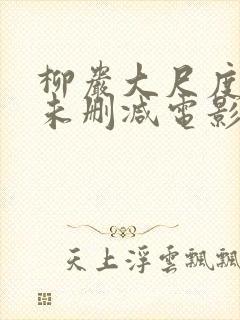 柳巖大尺度
未刪減電影
天上浮雲飄飄